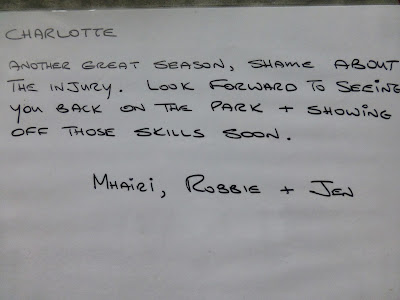 CHARLOTTE
ANOTHER GREAT SEASON, SHAME ABOUT
THE INJURY. LOOK FORWARD TO SEEING
YOU BACK ON THE PARK + SHOWING
OFF THOSE SKILLS SOON.
MHAIRI, ROBBIE + JEN